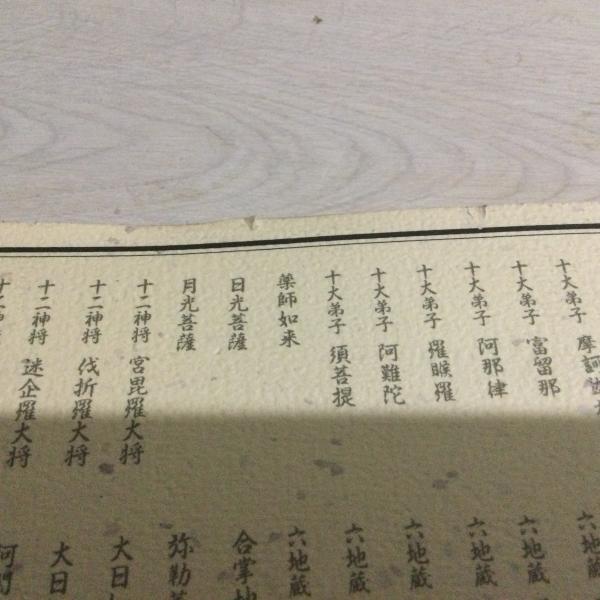 十大弟子 摩訶
十大弟子 富留那
十大弟子 阿那律
十大弟子 羅睺羅
十大弟子 阿難陀
十大弟子 須菩提
薬師如来
日光菩薩
月光菩薩
十二神将 宮毘羅大将
十二神将 伐折羅大将
十二神将 迷企羅大将
六地蔵
六地蔵
六地蔵
六地蔵
六地蔵
六地蔵
合掌地
弥勒菩
大日
大日